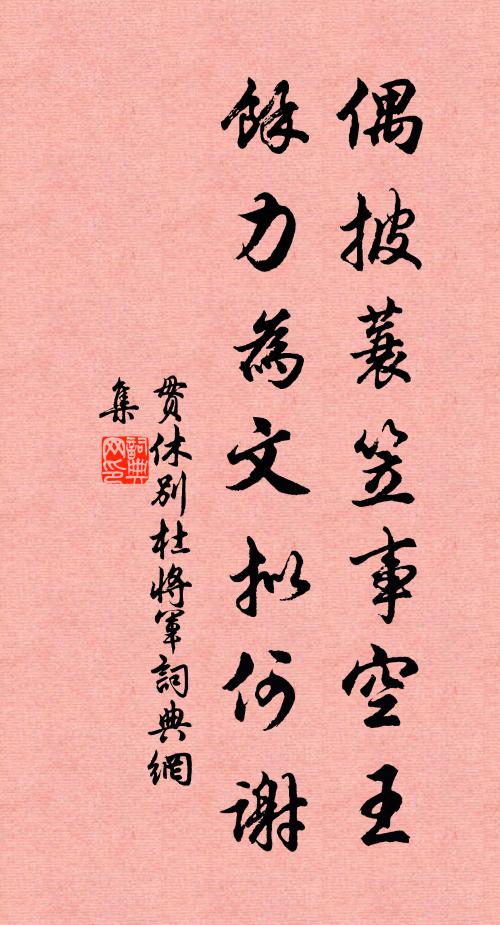 偶披蓑笠事空王
餘力為文擬何謝
貫休別杜將軍詞典網
集
詞典網印